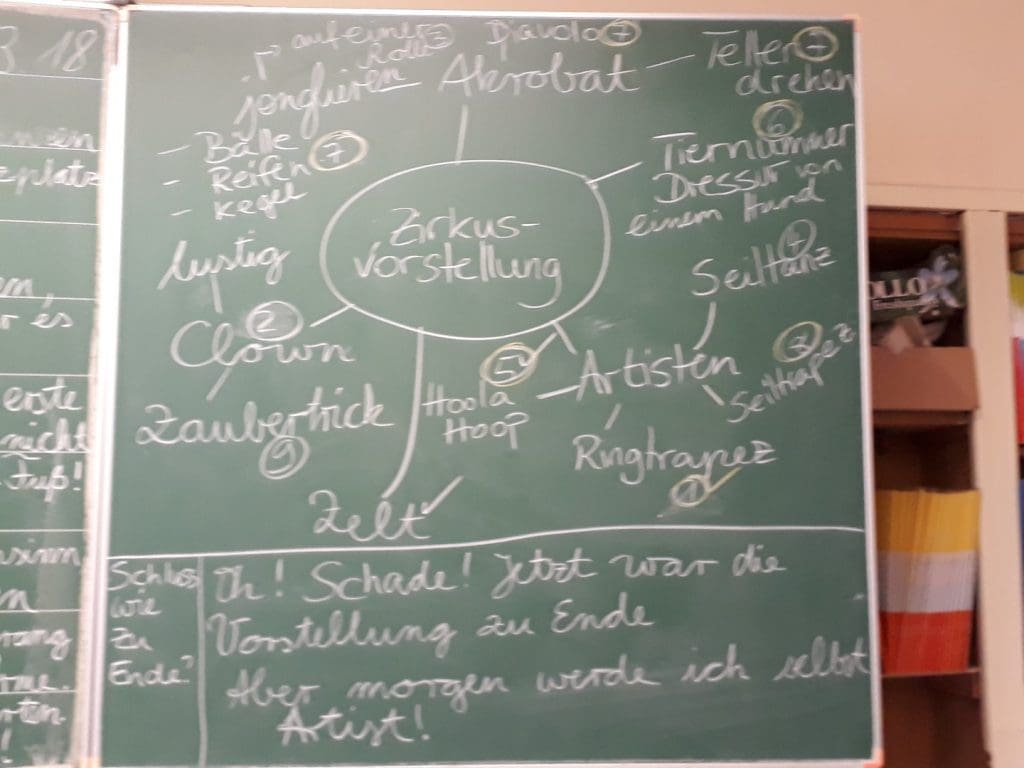 auf einer
Rolle 7
Diavolo 7
jonglieren
Akrobat
Teller 7
drehen
- Bälle
- Reifen 7
- Kegel
6
Tiernummer
Dressur von
einem Hund
Zirkus-
vorstellung
lustig
Clown 2
Zaubertrick
9
Seiltanz
Artisten
Seiltrapez
Hoola 5
Hoop
Ringtrapez
1
Zelt
Schluss,
wie
zu
Ende?
Oh! Schade! Jetzt war die
Vorstellung zu Ende
Aber morgen werde ich selbst
Artist!
3 18
erste
nicht